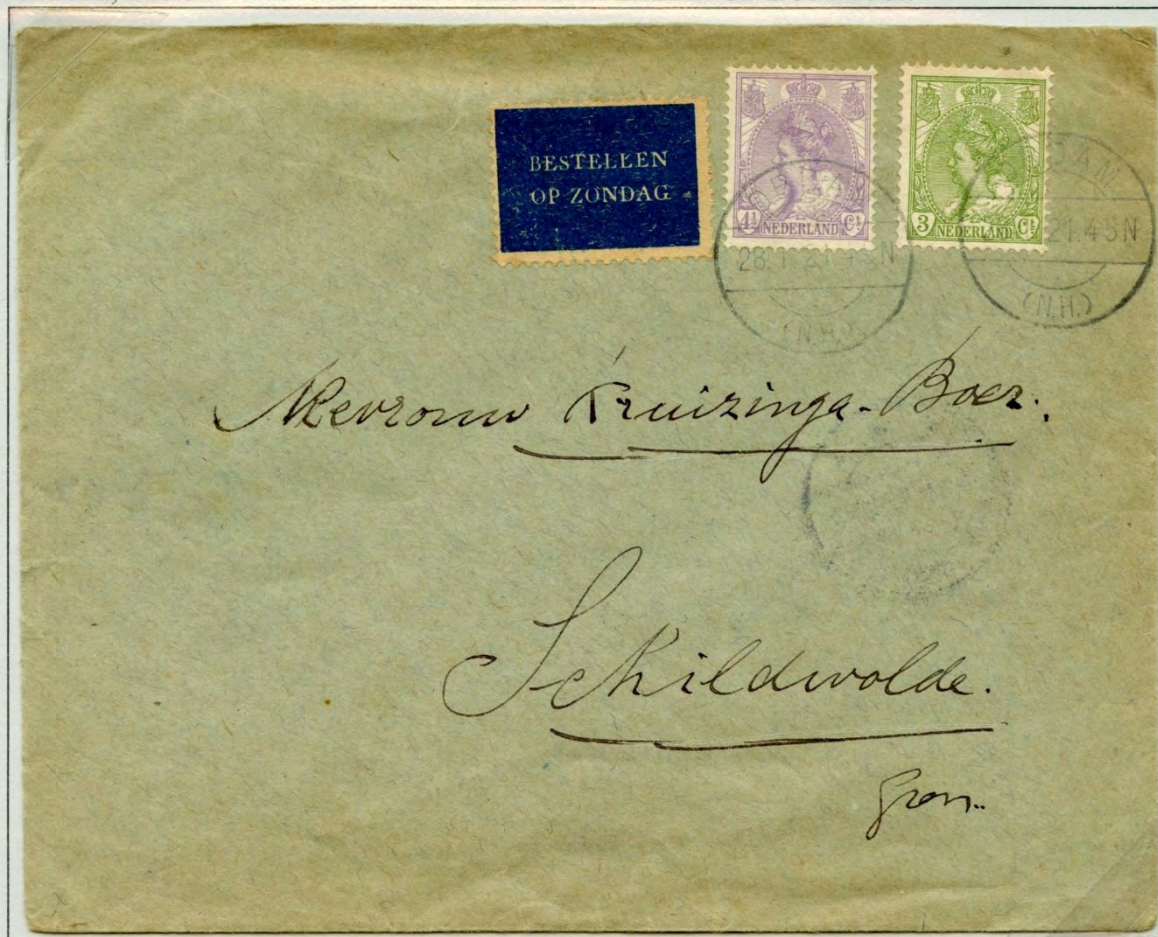 BESTELLEN
OP ZONDAG
4½ NEDERLAND Ct
3 NEDERLAND Ct
(N.H.)
21.45N
(N.H.)
Mevrouw Kruizinga-Boer.
Schildwolde.
Gron.